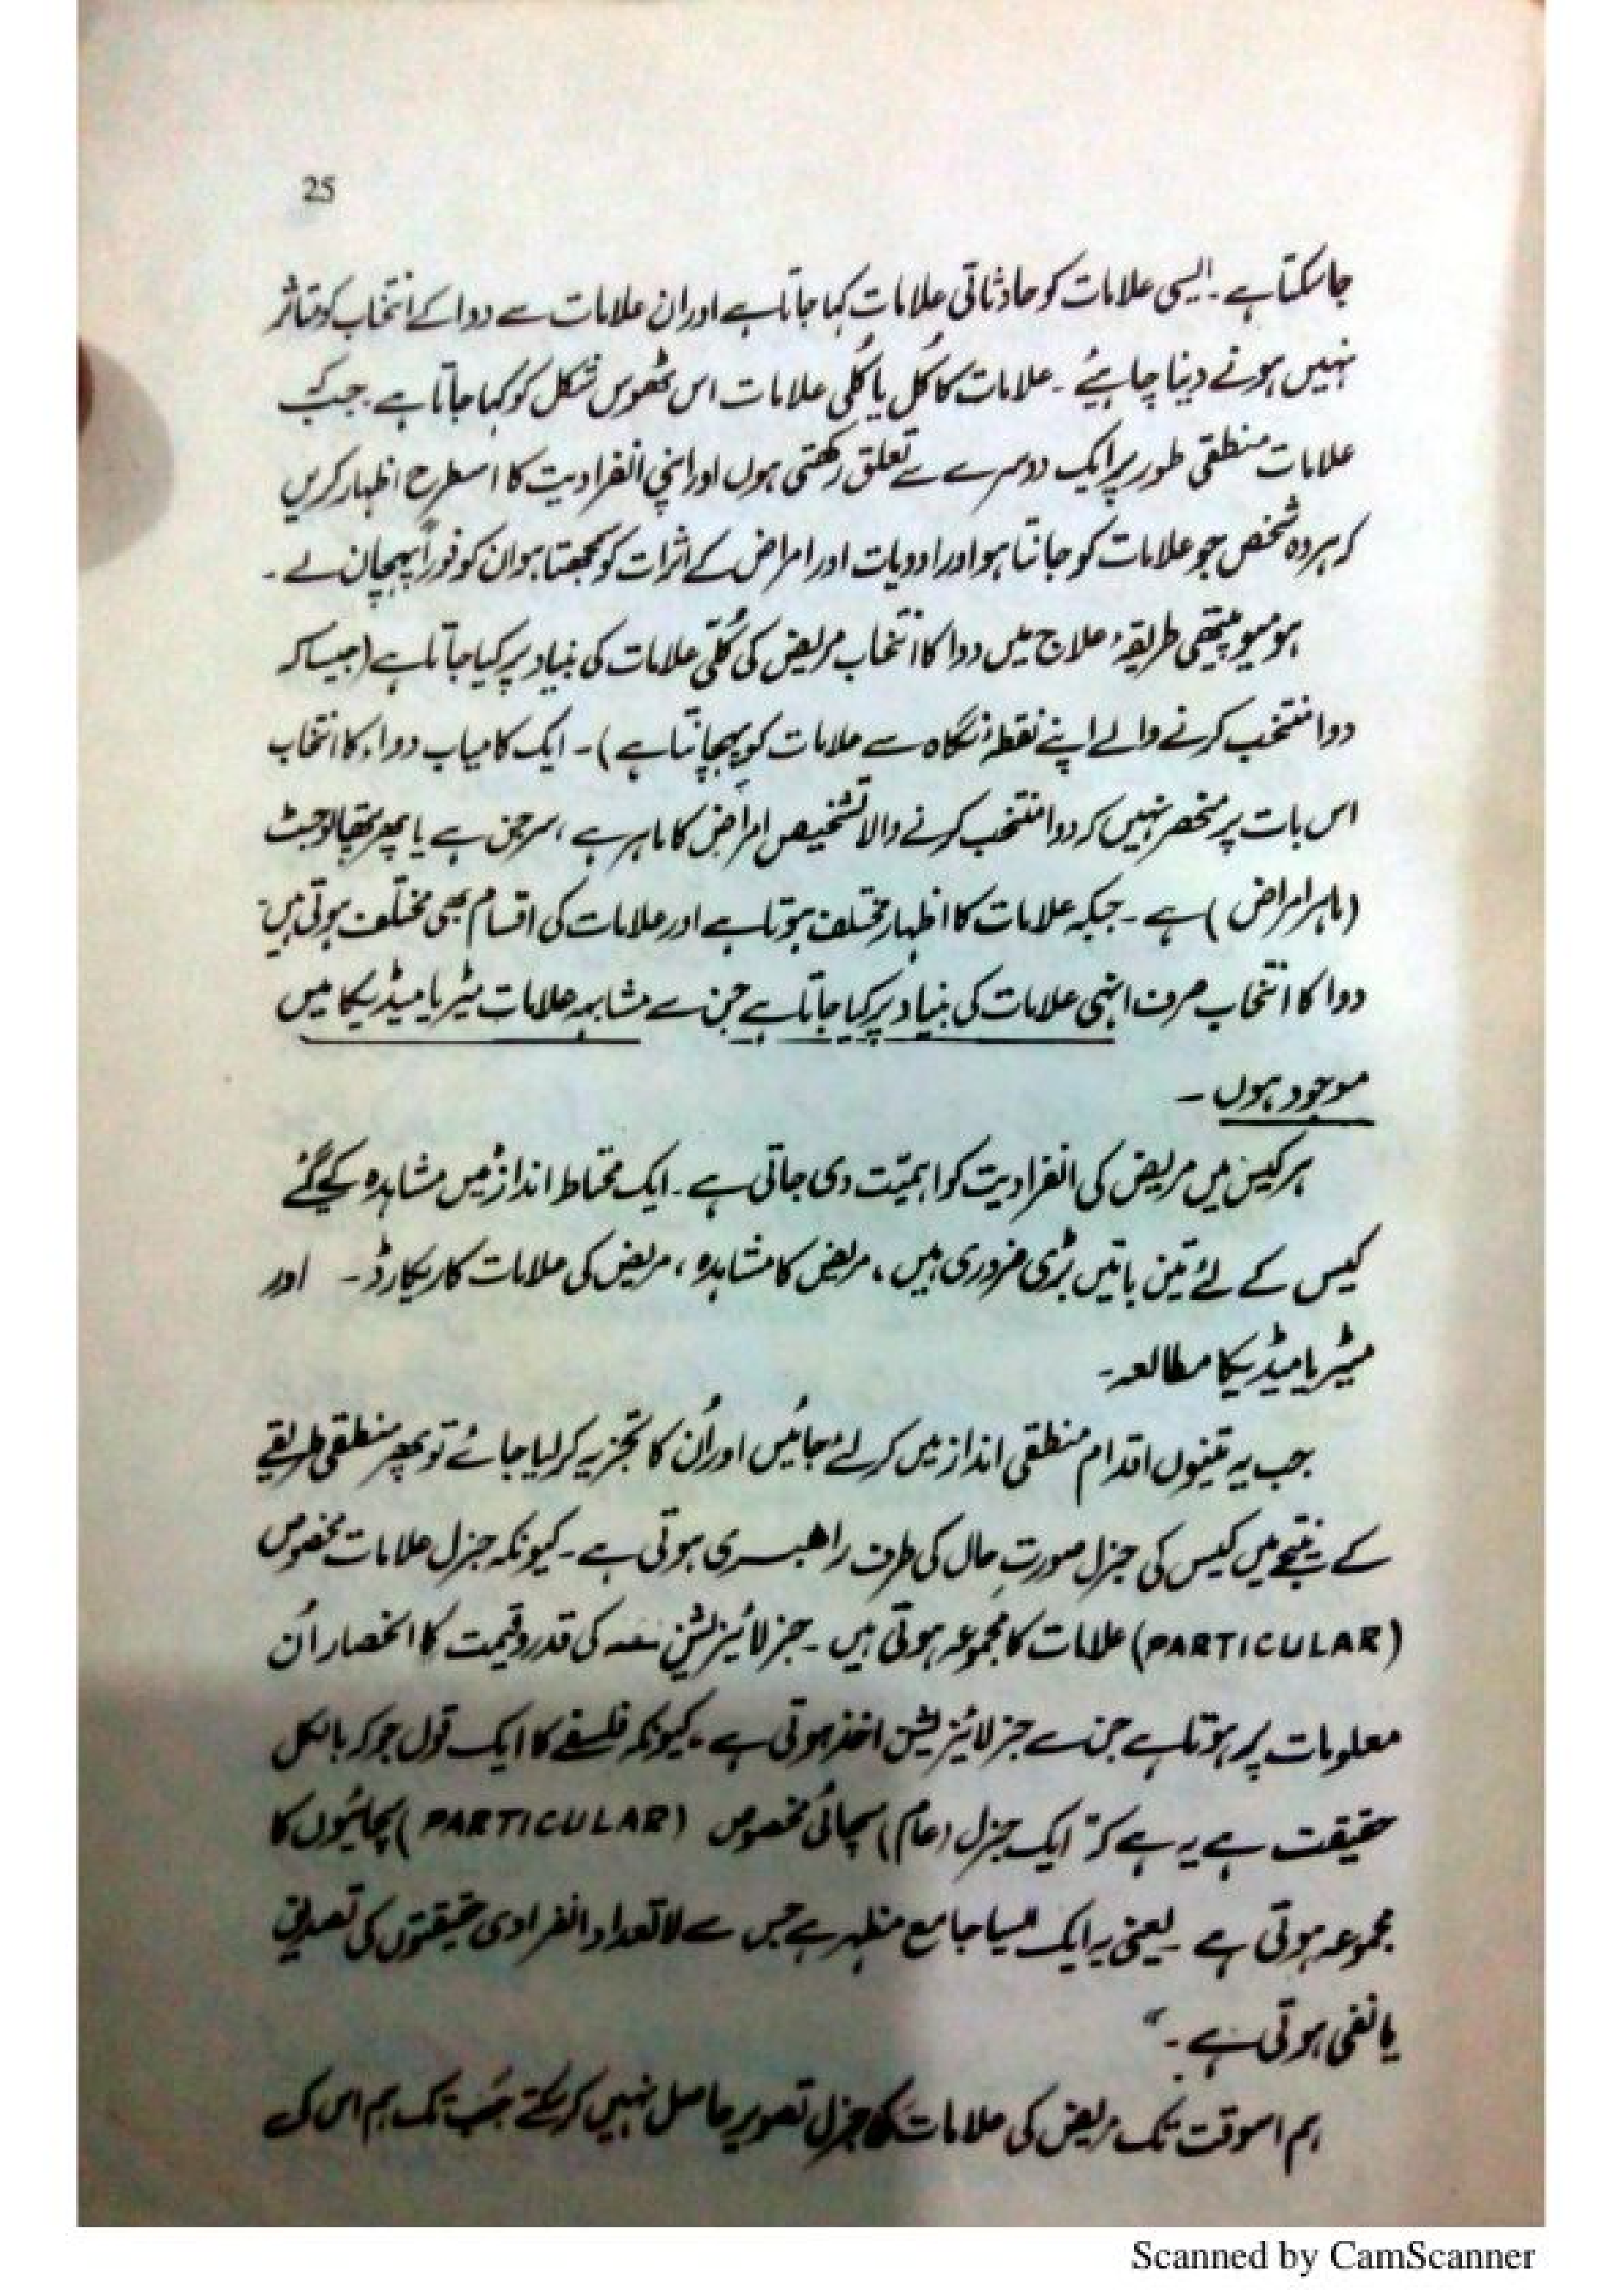 25
جا سکتا ہے ۔ ایسی علامات کو حادثاتی علامات کہا جاتا ہے اور ان علامات سے دوا کے انتخاب کو متاثر
نہیں ہونے دینا چاہیئے ۔ علامات کا کُل یا کُلی علامات اس ٹھوس شکل کو کہا جاتا ہے ۔ جب کہ
علامات منطقی طور پر ایک دوسرے سے تعلق رکھتی ہوں اور اپنی انفرادیت کا اسطرح اظہار کریں
کہ ہر وہ شخص جو علامات کو جانتا ہو اور ادویات اور امراض کے اثرات کو سمجھتا ہو ان کو فوراً پہچان لے ۔
ہومیوپیتھی طریقۂ علاج میں دوا کا انتخاب مریض کی کُلّی علامات کی بنیاد پر کیا جاتا ہے (جیسا کہ
دوا منتخب کرنے والے اپنے نقطۂ نگاہ سے علامات کو پہچانتا ہے) ۔ ایک کامیاب دواء کا انتخاب
اس بات پر منحصر نہیں کہ دوا منتخب کرنے والا تشخیص امراض کا ماہر ہے ، سرجن ہے یا پھر پتھالوجسٹ
(ماہر امراض) ہے ۔ جبکہ علامات کا اظہار مختلف ہوتا ہے اور علامات کی اقسام بھی مختلف ہوتی ہیں ۔
دوا کا انتخاب صرف انہی علامات کی بنیاد پر کیا جاتا ہے جن سے مشابہہ علامات میٹریا میڈیکا میں
موجود ہوں ۔
ہر کیس میں مریض کی انفرادیت کو اہمیّت دی جاتی ہے ۔ ایک محتاط انداز میں مشاہدہ کیے گئے
کیس کے لئے تین باتیں بڑی ضروری ہیں ، مریض کا مشاہدہ ، مریض کی علامات کا ریکارڈ ۔ اور
میٹریا میڈیکا مطالعہ ۔
جب یہ تینوں اقدام منطقی انداز میں کر لئے جائیں اور اُن کا تجزیہ کر لیا جائے تو پھر منطقی طریقے
کے نتیجے میں کیس کی جنرل صورتِ حال کی طرف راھبری ہوتی ہے ۔ کیونکہ جنرل علامات مخصوص
(PARTICULAR) علامات کا مجموعہ ہوتی ہیں ۔ جنرلائیزیشن کی قدر و قیمت کا انحصار اُن
معلومات پر ہوتا ہے جن سے جنرلائیزیشن اخذ ہوتی ہے ۔ کیونکہ فلسفے کا ایک قول جو کہ بالکل
حقیقت ہے یہ ہے کہ " ایک جنرل (عام) سچائی مخصوص (PARTICULAR) سچائیوں کا
مجموعہ ہوتی ہے ۔ یعنی یہ ایک ایسا جامع مظہر ہے جس سے لاتعداد انفرادی حقیقتوں کی تصدیق
یا نفی ہوتی ہے ۔ "
ہم اسوقت تک مریض کی علامات کا جنرل تصویر حاصل نہیں کر سکتے جب تک ہم اس کی
Scanned by CamScanner